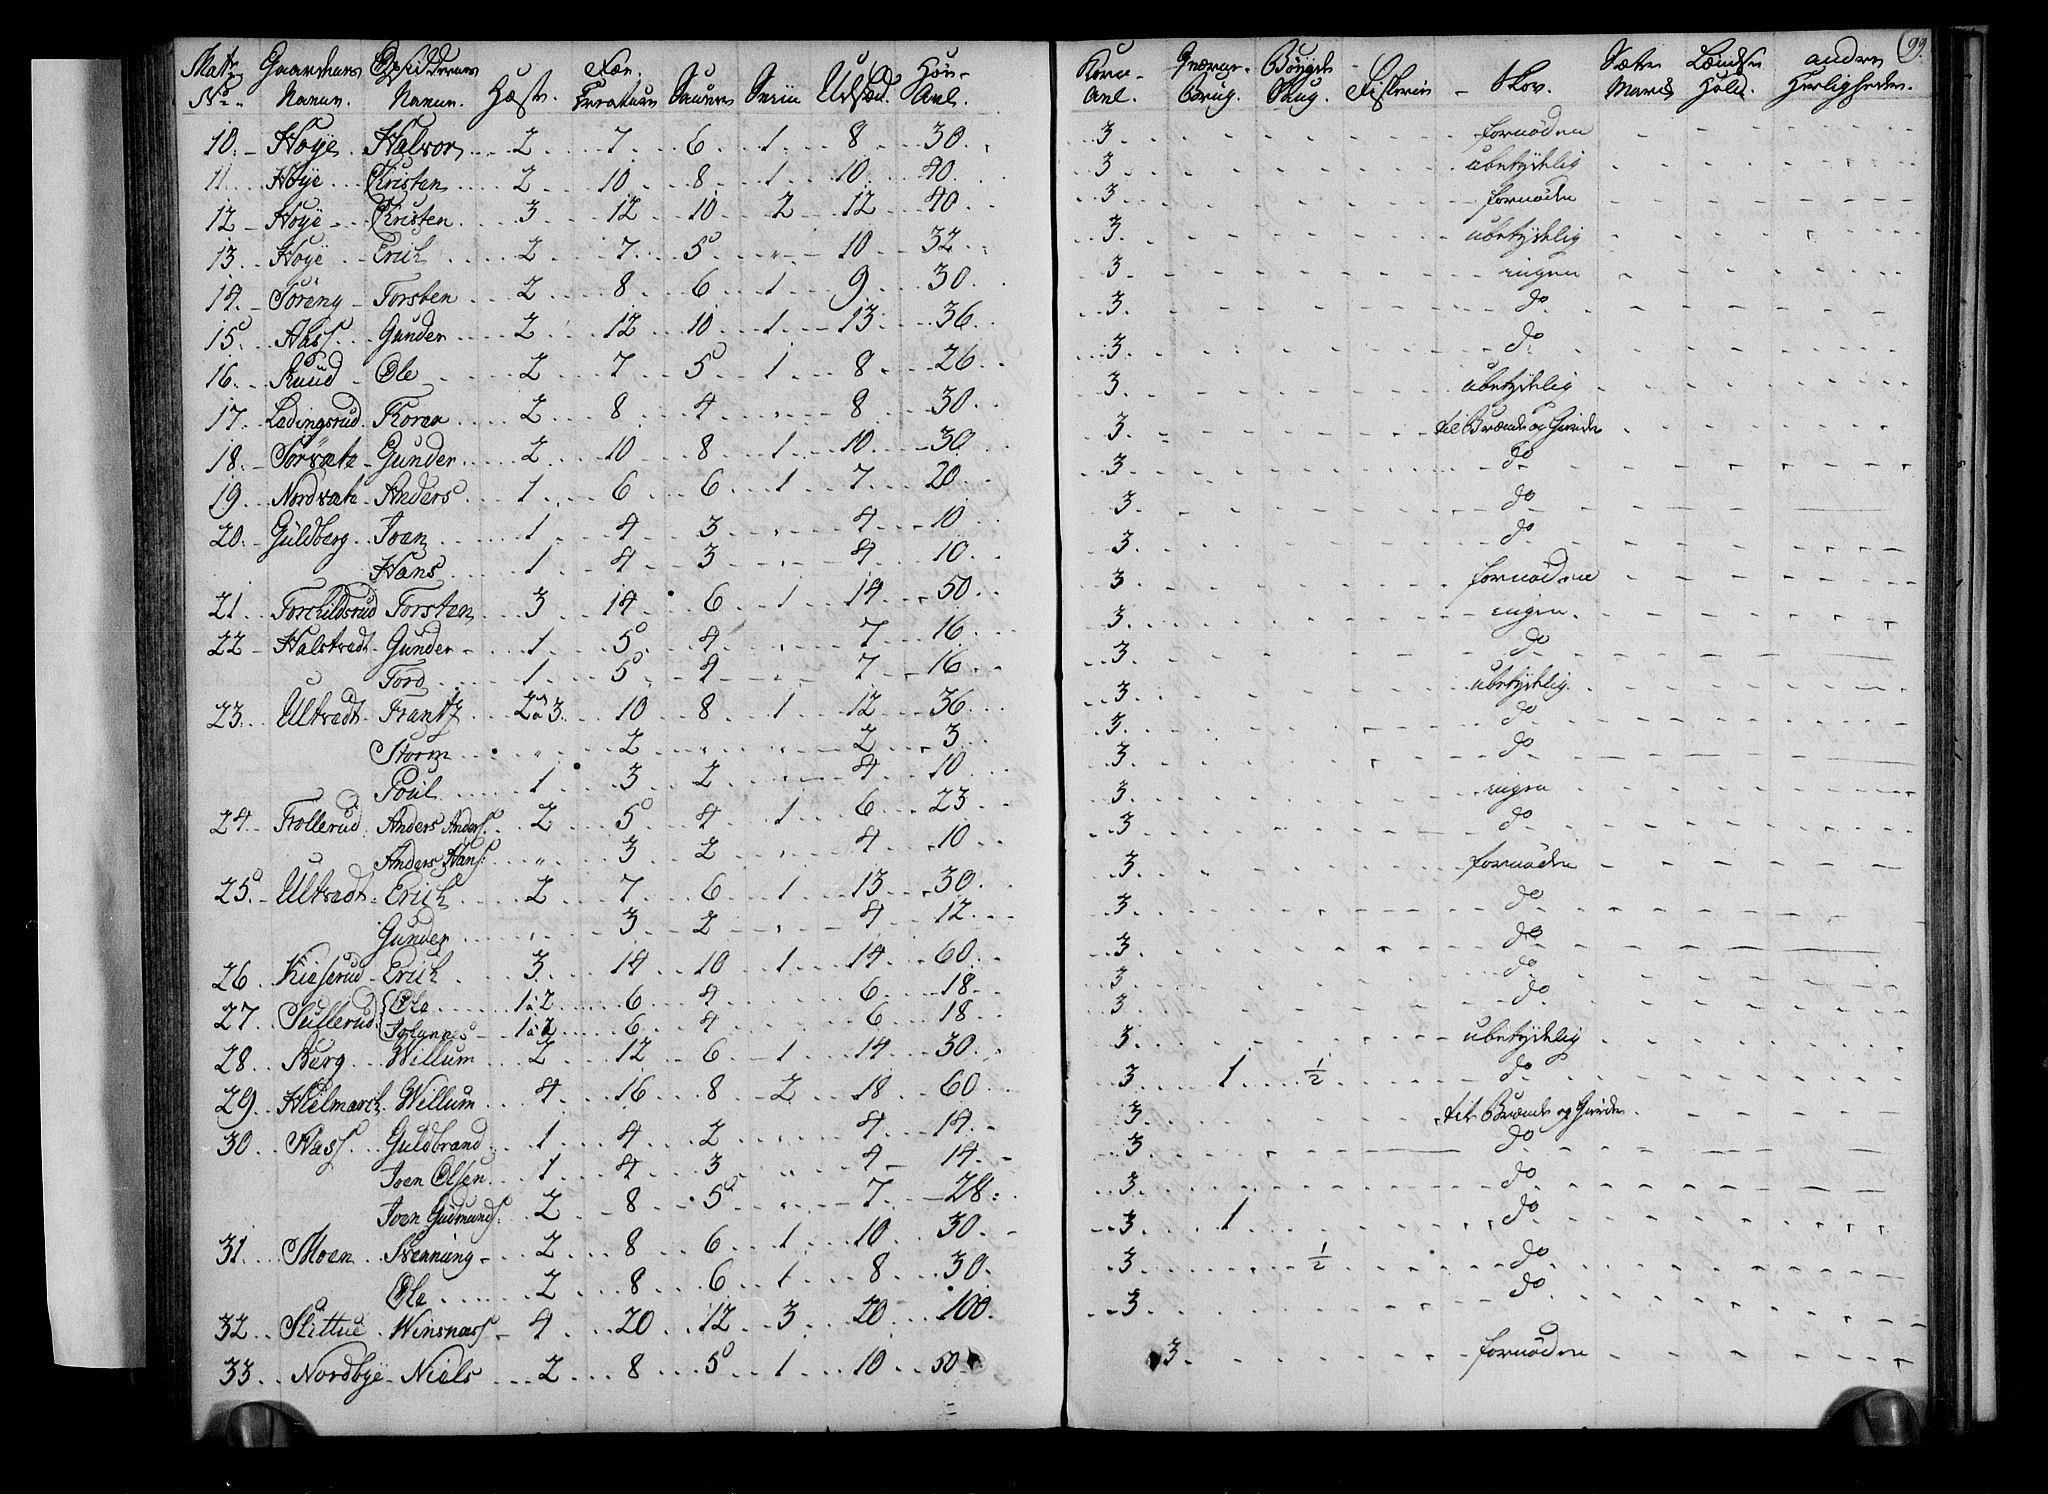 99.
Matr: Gaardenes Opsiddernes Fæe- Høe- Korn- Qværne- Bøygde- Sæter Lændse andre
No. Navne. Navne. Heste. Creature Sauer Sviin Udsæd. Avl. Avl. brug. Saug. Fiskerie Skov. Mark Hold. Herligheder.
10. Høye. Halvor 2 7 6 1 8 30. 3 fornøden
11. Høye Christen 2 10 8 1 10 40. 3 ubetydelig
12 Høye Christen. 3 12 10 2 12 40 3 fornøden
13. Høye Erich 2 7 5 " 10 32 3 ubetydelig
14. Søreng Torsten 2 8 6 1 9 30. 3 ingen
15. Aass Gunder 2 12 10 1 13 36 3 do
16. Ruud Ole 2 7 5 1 8 26 3 do
17. Ladingsrud Thoren 2 8 4 " 8 30. 3 ubetydelig
18. Sørvete Gunder 2 10 8 1 10 30 3 til Brænde og Gierde
19. Nordvete Anders 1 6 6 1 7 20 3 do
20. Guldberg Joen 1 4 3 4 10 3 do
Hans 1 4 3 4 10 3 do
21 Torchildsrud Torsten 3 14 6 1 14 50 3 fornøden
22 Halstvedt Gunder 1 5 4 7 16 3 ingen.
Tord 1 5 4 7 16 3 do
23. Ultvedt Frantz 2 à 3. 10 8 1 12 36 3 ubetydelig
Storm " 2 " " 2 3 3 do
Poul 1 3 2 4 10 3 do
24. Trollerud Anders Anders: 2 5 4 1 6 23 3 ingen
Anders Hans: " 3 2 4 10 3 do
25. Ultvedt Erich 2 7 6 1 13 30 3 fornøden
Gunder " 3 2 " 4 12 3 do
26 Kieserud Erich 3 14 10 1 14 60 3 do
27. Sullerud Ole 1 à 2 6 4 6 18 3 do
Johannes 1 à 2 6 4 6 18 3 do
28. Berg Willum 2 12 6 1 14 30 3 ubetydelig
29. Hielmarch Willum 4 16 8 2 18 60 3 1 ½ do
30 Aass Guldbrand 1 4 2 4 14 3 til Brænde og Gierde
Joen Olsen 1 4 3 4 14 3 do
Joen Gudmunds: 2 8 5 7 28 3 do
31. Moen Svenning 2 8 6 1 10 30 3 1 do
Ole 2 8 6 1 8 30. 3 ½ do
32 Skittue Winsnæss 4 20 12 3 20 100. 3 do
33 Nordbye Niels 2 8 5 1 10 50 3 fornøden